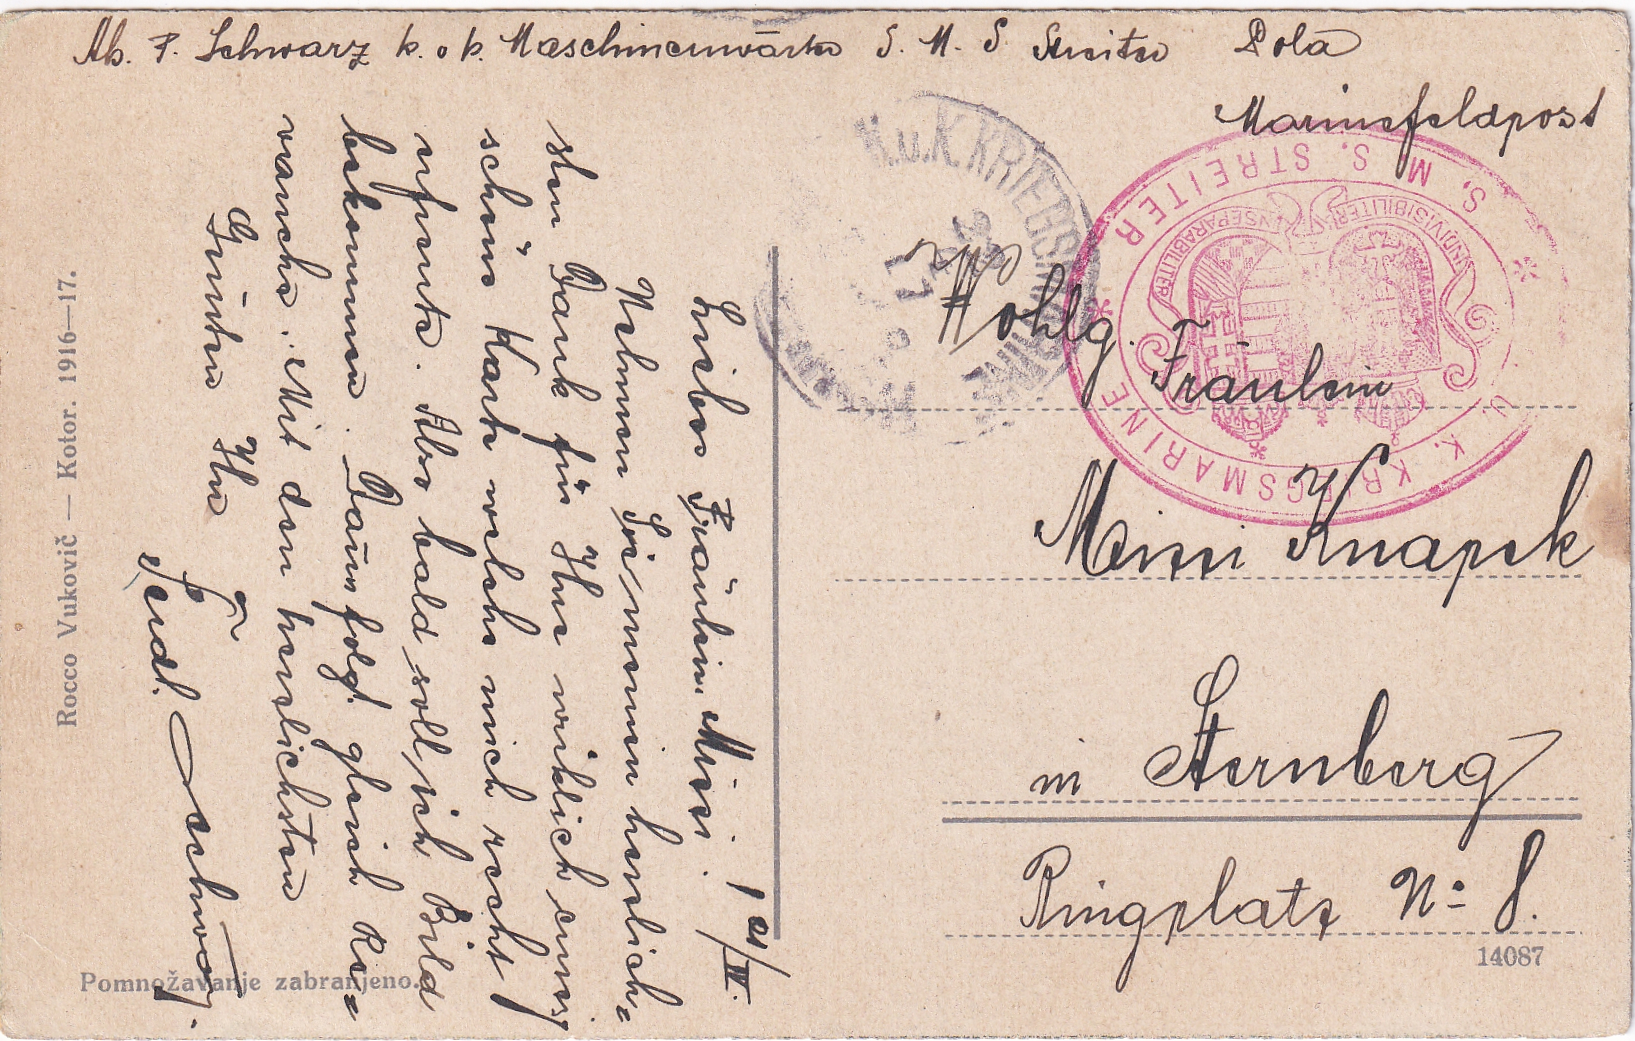 Ab. F. Schwarz k. o k. Maschinenwärter S. M. S. Streiter Pola
Marinefeldpost
K.u.K. KRIEGSMARINE
S. M. S. STREITER
U. K. KRIEGSMARINE
INDIVISIBILITER
INSEPARABILITER
Wohlg. Fräulein
Missi Knapek
in Sternberg
Ringplatz No 8.
14087
1 IV.
Liebes Fräulein
Nehmen Sie meinen herzlich=
sten Dank für Ihre wirklich
schöne Karte welche mich recht
erfreute. Also bald soll ich Bild
bekommen. Dann folgt gleich Re=
vanche. Mit den herzlichsten
Grüßen Ihr
Ferd. Schwarz.
Rocco Vukovič — Kotor. 1916—17.
Pomnožavanje zabranjeno.